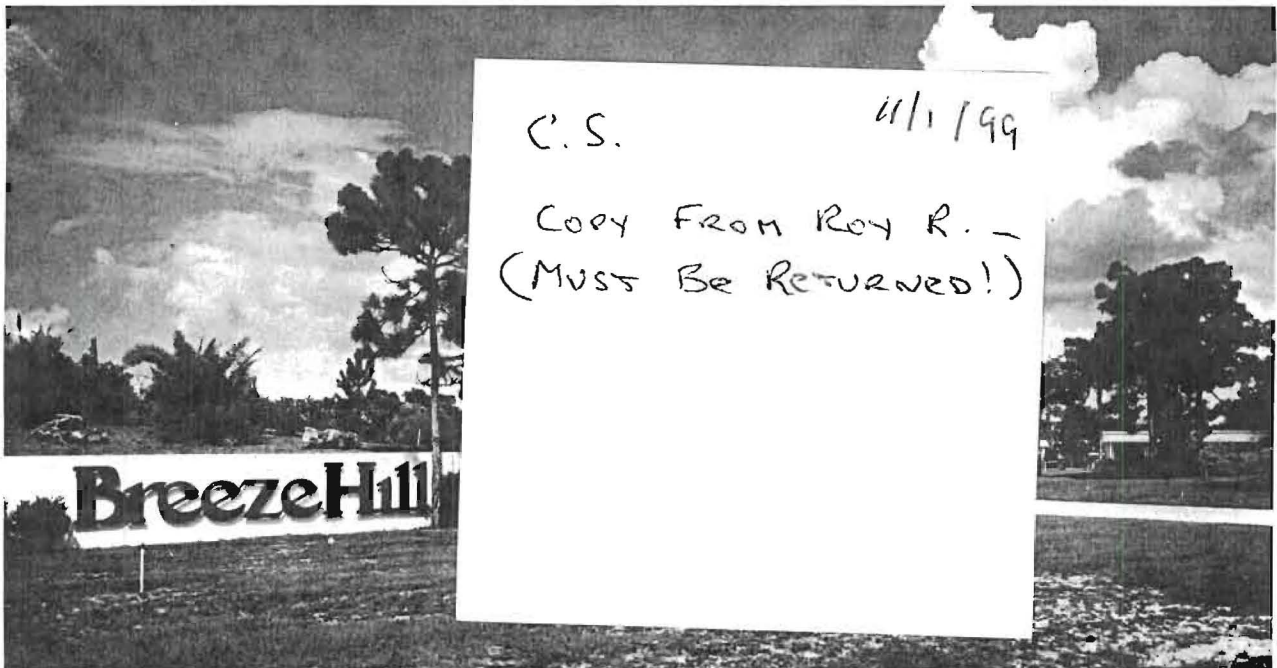 C.S. 11/1/99
COPY FROM ROY R. –
(MUST BE RETURNED!)
BreezeHill